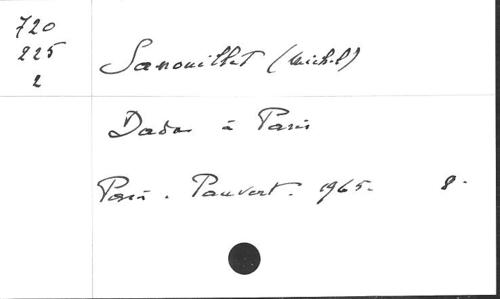 720
225
2
Sanouillet (Michel)
Dada à Paris
Paris. Pauvert. 1965. 8.